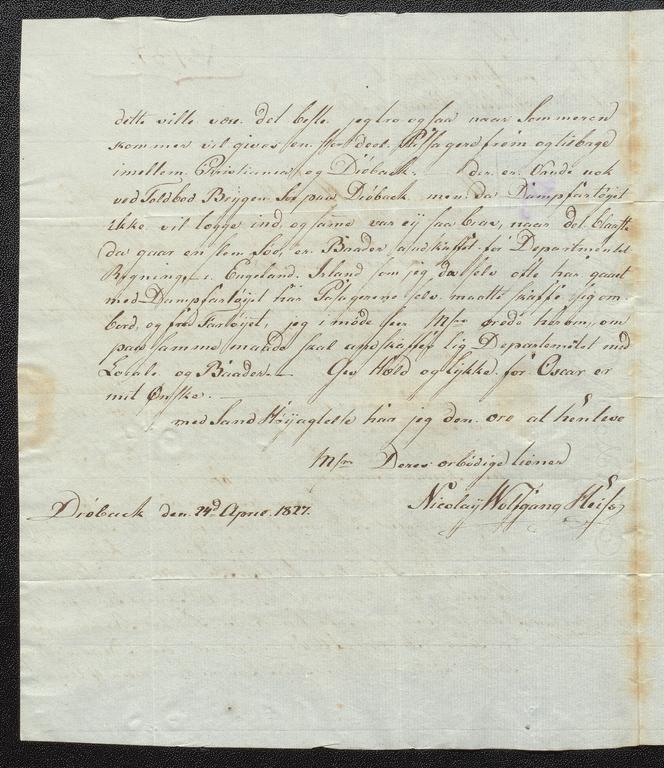 dette ville være det beste. jeg tro ogsaa naar Sommeren
kommer vil gives en stor deel Passagere frem og tilbage
imellem Christiania og Drøback. der er Vande nok
ved Toldbod Bryggen her paa Drøback men da Dampfartøyet
ikke vil legge ind, og samme var ey saa brav, naar det blæste
da gaar en Søe, er Baader anskaffet for Departementes
Regning, i Engeland, Irland som jeg da selv ofte har gaaet
med Dampfartøyet har Passagerene selv maatte skaffe sig om-
bord, og fra Fartøyet, jeg i møde seer Msr ordre herom, om
paa samme maade skal anskaffes lig Departementet med
Locale og Baader. — Gev Held og Lykke for Oscar er
mit Ønske.
med Sand Høyagtelse har jeg den Ære at henleve
Msr Deres ærbødige tiener
Drøback den 24d April 1827. Nicolay Wolfgang